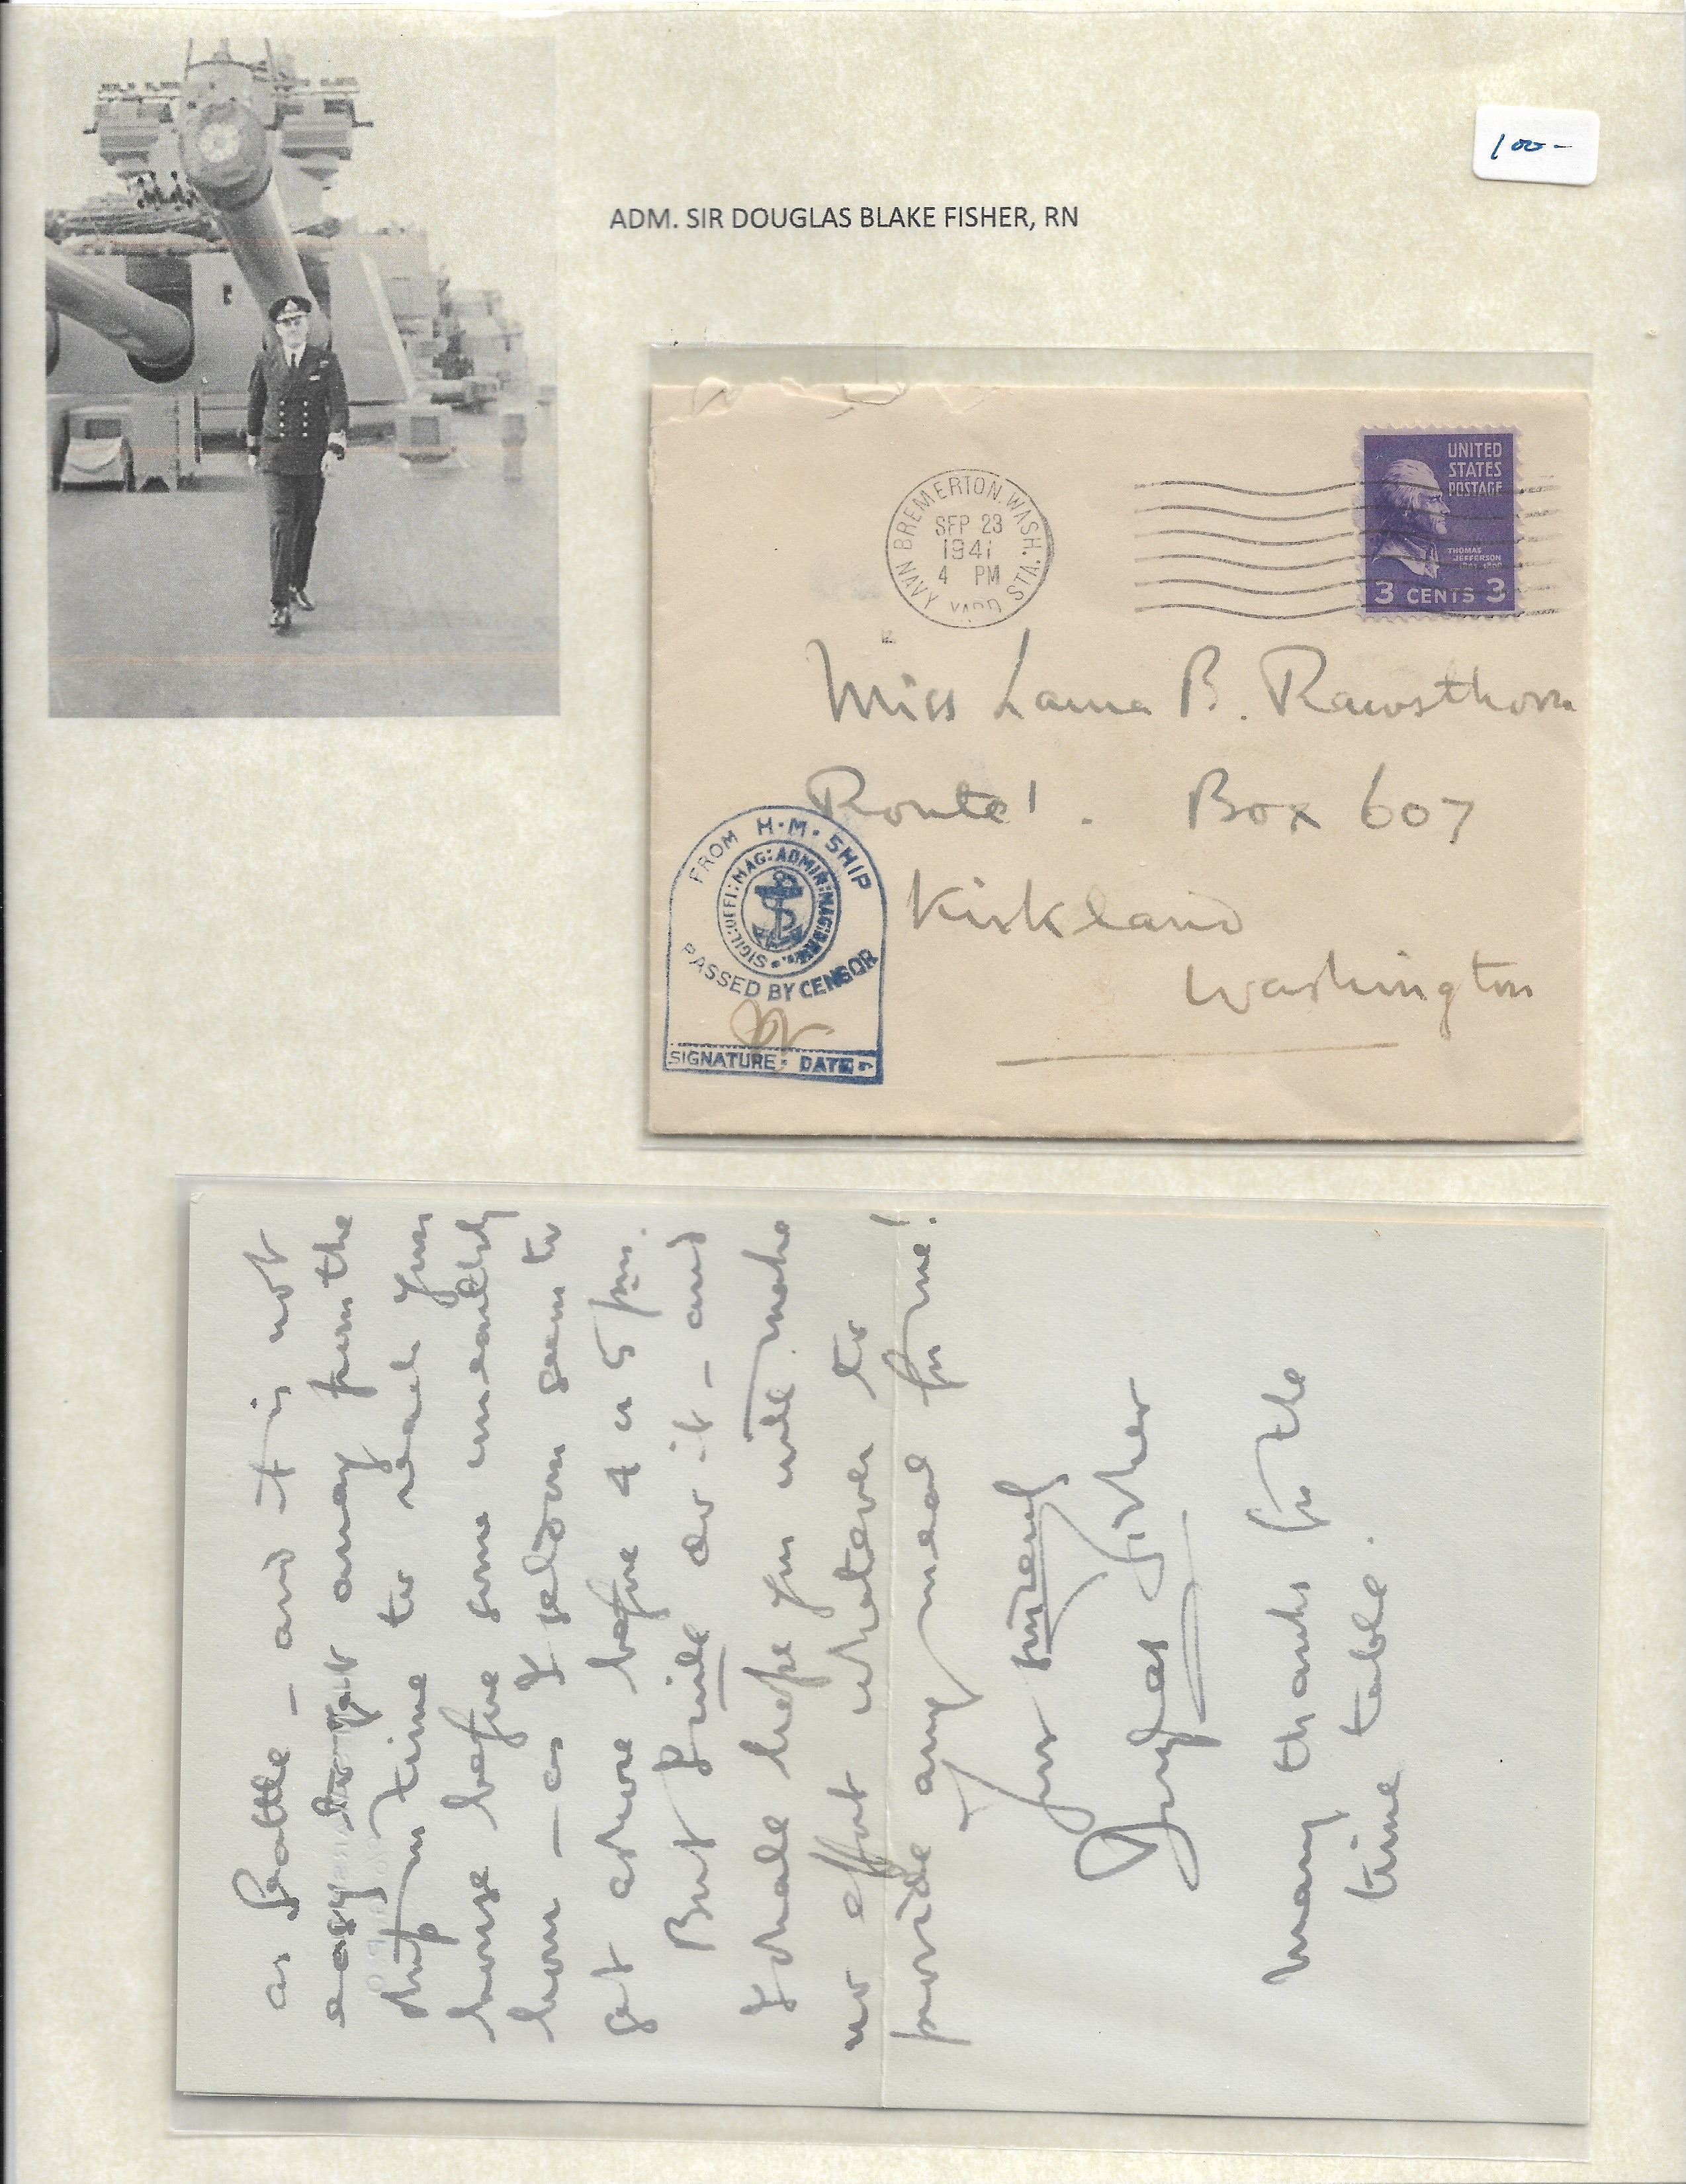 100-
ADM. SIR DOUGLAS BLAKE FISHER, RN
BREMERTON, WASH.
SEP 23
1941
4 PM
NAVY YARD STA.
UNITED
STATES
POSTAGE
THOMAS
JEFFERSON
3 CENTS 3
Miss Laura B. Rawsthorn
Route 1. Box 607
Kirkland
Washington
FROM H·M·SHIP
SIGIL:OFFI:MAG:ADMIR:MAG:
PASSED BY CENSOR
SIGNATURE: DATE:
as Seattle - and it is not
easy to get away from the
ship in time to reach your
house before some unearthly
hour - as I seldom seem to
get ashore before 4 or 5 pm.
But I will do it - and
I shall hope you will make
no effort whatever to
provide any meal for me!
Yours sincerely
Douglas Fisher
Many thanks for the
time table.